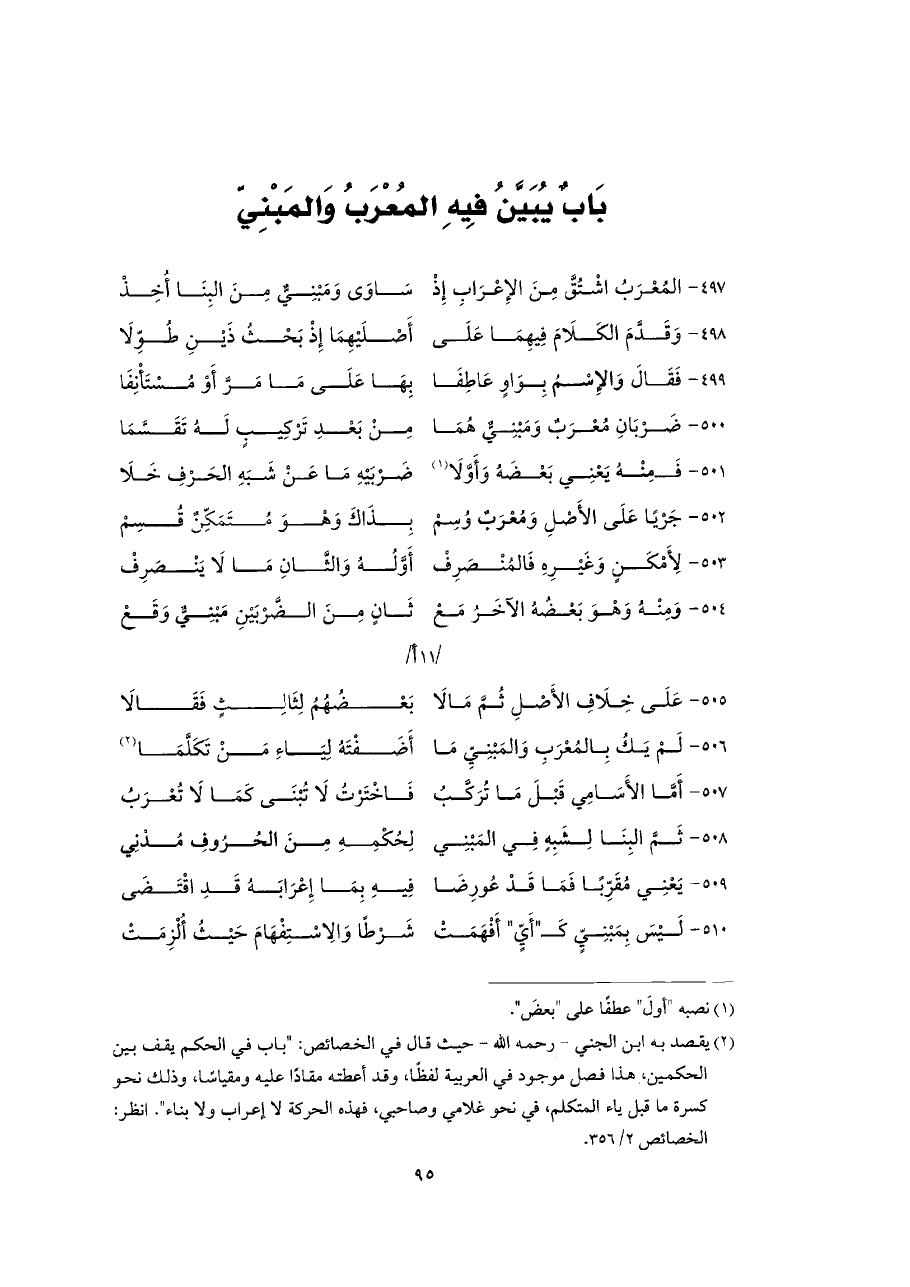 بَابٌ يُبَيَّنُ فِيهِ المُعْرَبُ وَالمَبْنِيّ
٤٩٧- المُعْرَبُ اشْتُقَّ مِنَ الإِعْرَابِ إِذْ سَاوَى وَمَبْنِيٌّ مِنَ البِنَا أُخِذْ
٤٩٨- وَقَدَّمَ الكَلَامَ فِيهِمَا عَلَى أَصْلَيْهِمَا إِذْ بَحْثُ ذَيْنِ طُوِّلَا
٤٩٩- فَقَالَ وَالِاسْمُ بِوَاوٍ عَاطِفَا بِهَا عَلَى مَا مَرَّ أَوْ مُسْتَأْنِفَا
٥٠٠- ضَرْبَانِ مُعْرَبٌ وَمَبْنِيٌّ هُمَا مِنْ بَعْدِ تَرْكِيبٍ لَهُ تَقَسَّمَا
٥٠١- فَمِنْهُ يَعْنِي بَعْضَهُ وَأَوَّلَا(١) ضَرْبَيْهِ مَا عَنْ شَبَهِ الحَرْفِ خَلَا
٥٠٢- جَرْيًا عَلَى الأَصْلِ وَمُعْرَبٌ وُسِمْ بِذَاكَ وَهْوَ مُتَمَكِّنٌ قُسِمْ
٥٠٣- لِأَمْكَنٍ وَغَيْرِهِ فَالمُنْصَرِفْ أَوَّلُهُ وَالثَّانِ مَا لَا يَنْصَرِفْ
٥٠٤- وَمِنْهُ وَهْوَ بَعْضُهُ الآخَرُ مَعْ ثَانٍ مِنَ الضَّرْبَيْنِ مَبْنِيٌّ وَقَعْ
/١١أ/
٥٠٥- عَلَى خِلَافِ الأَصْلِ ثُمَّ مَالَا بَعْضُهُمُ لِثَالِثٍ فَقَالَا
٥٠٦- لَمْ يَكُ بِالمُعْرَبِ وَالمَبْنِيِّ مَا أَضَفْتَهُ لِيَاءِ مَنْ تَكَلَّمَا(٢)
٥٠٧- أَمَّا الأَسَامِي قَبْلَ مَا تُرَكَّبُ فَاخْتَرْتُ لَا تُبْنَى كَمَا لَا تُعْرَبُ
٥٠٨- ثَمَّ البِنَا لِشَبَهٍ فِي المَبْنِي لِحُكْمِهِ مِنَ الحُرُوفِ مُدْنِي
٥٠٩- يَعْنِي مُقَرِّبًا فَمَا قَدْ عُورِضَا فِيهِ بِمَا إِعْرَابَهُ قَدِ اقْتَضَى
٥١٠- لَيْسَ بِمَبْنِيٍّ كَـ"أَيٍّ" أَفْهَمَتْ شَرْطًا وَالِاسْتِفْهَامَ حَيْثُ أُلْزِمَتْ
(١) نصبه "أولَ" عطفًا على "بعضَ".
(٢) يقصد به ابن الجني - رحمه الله - حيث قال في الخصائص: "باب في الحكم يقف بين
الحكمين، هذا فصل موجود في العربية لفظًا، وقد أعطته مقادًا عليه ومقياسًا، وذلك نحو
كسرة ما قبل ياء المتكلم، في نحو غلامي وصاحبي، فهذه الحركة لا إعراب ولا بناء". انظر:
الخصائص ٢/ ٣٥٦.
٩٥